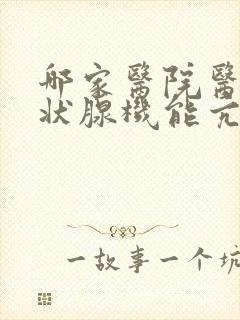 哪家醫院醫
狀腺機能亢
一故事一个坑